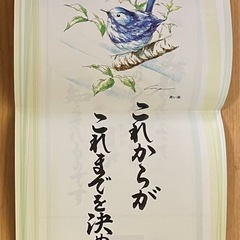 これからが
これまでを決め